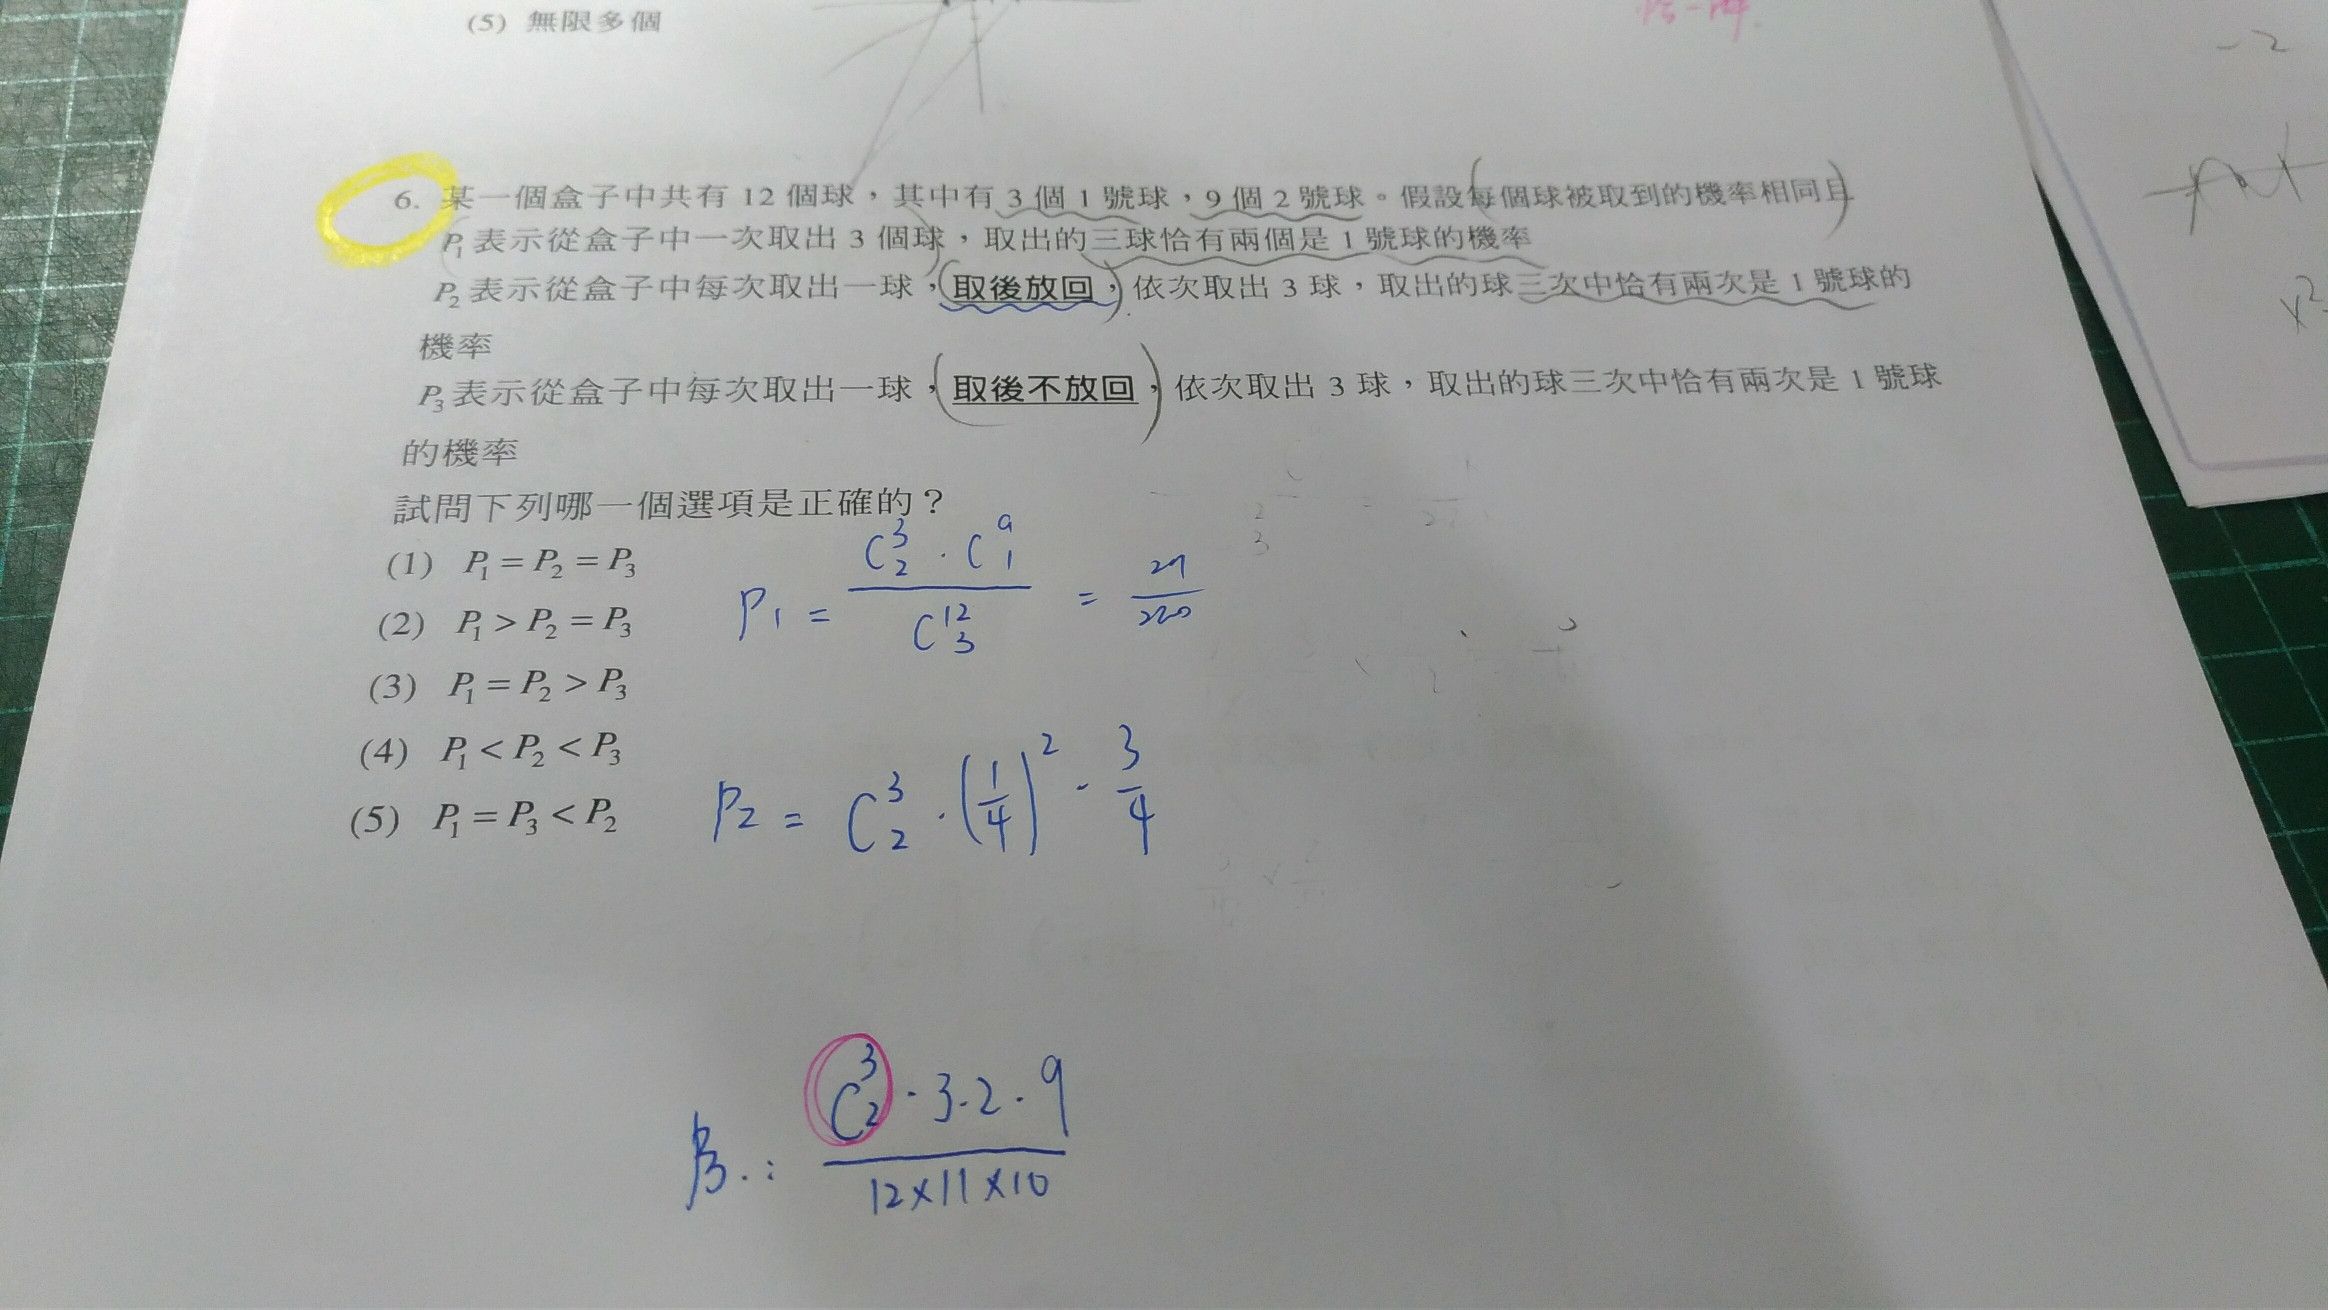 (5) 無限多個
6. 某一個盒子中共有 12 個球，其中有 3 個 1 號球，9 個 2 號球。假設每個球被取到的機率相同且
P₁ 表示從盒子中一次取出 3 個球，取出的三球恰有兩個是 1 號球的機率
P₂ 表示從盒子中每次取出一球，取後放回，依次取出 3 球，取出的球三次中恰有兩次是 1 號球的
機率
P₃ 表示從盒子中每次取出一球，取後不放回，依次取出 3 球，取出的球三次中恰有兩次是 1 號球
的機率
試問下列哪一個選項是正確的？
(1) P₁ = P₂ = P₃
(2) P₁ > P₂ = P₃
(3) P₁ = P₂ > P₃
(4) P₁ < P₂ < P₃
(5) P₁ = P₃ < P₂
P₁ = C³₂ · C⁹₁ / C¹²₃ = 27/220
P₂ = C³₂ · (1/4)² · 3/4
P₃ : C³₂ · 3 · 2 · 9 / 12×11×10
-2
x²